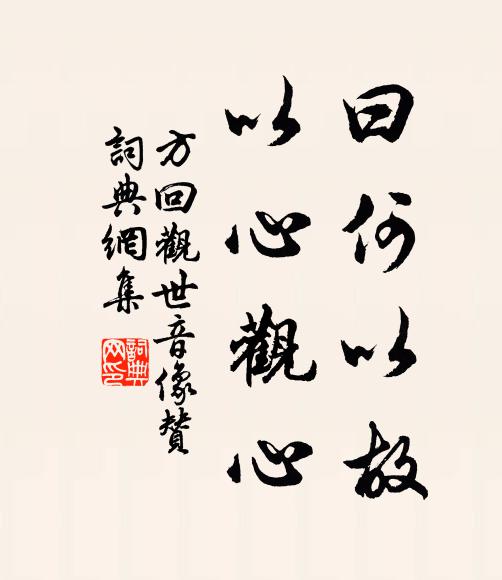 曰何以故
以心觀心
方回觀世音像贊
詞典網集
詞典
网印